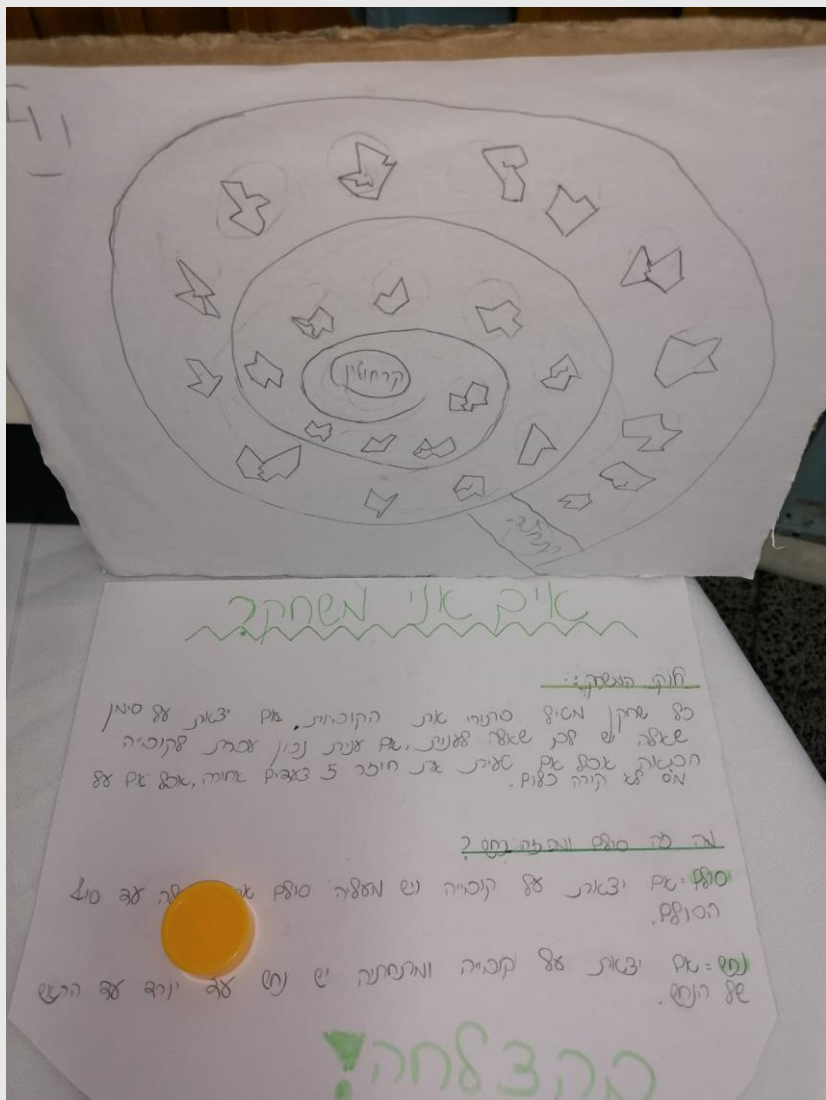 איך אני משחק?
חוקי המשחק:
כל שחקן מטיל בתורו את הקוביות. אם יצאת על סימן
שאלה יש לך שאלה לענות, אם ענית נכון עברת לקובייה
הבאה אבל אם טעית את חוזר 5 צעדים אחורה, אבל אם על
לא קורה כלום.
מה זה סולם ומה זה נחש?
סולם=אם יצאת על קובייה ויש מעליה סולם עד סוף
הסולם.
נחש=אם יצאת על קובייה ומתחתיה יש נחש יורד עד הראש
של הנחש.
בהצלחה!